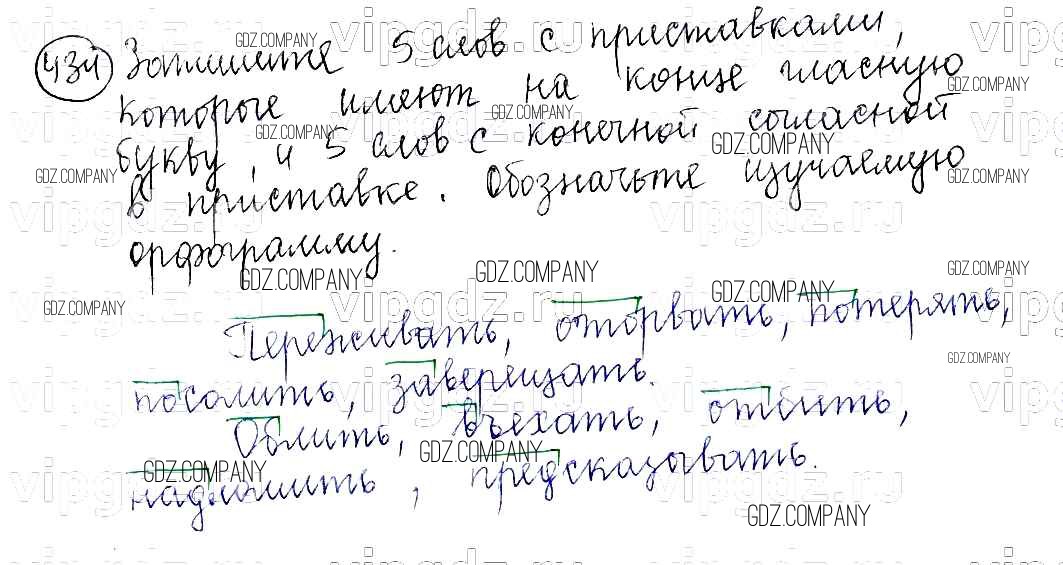 434 Запишите 5 слов с приставками,
которые имеют на конце гласную
букву, и 5 слов с конечной согласной
в приставке. Обозначьте изучаемую
орфограмму.
Переживать, оторвать, потерять,
посолить, заверещать.
Облить, въехать, отбить,
надломить, предсказывать.
GDZ.COMPANY
vipgdz.ru